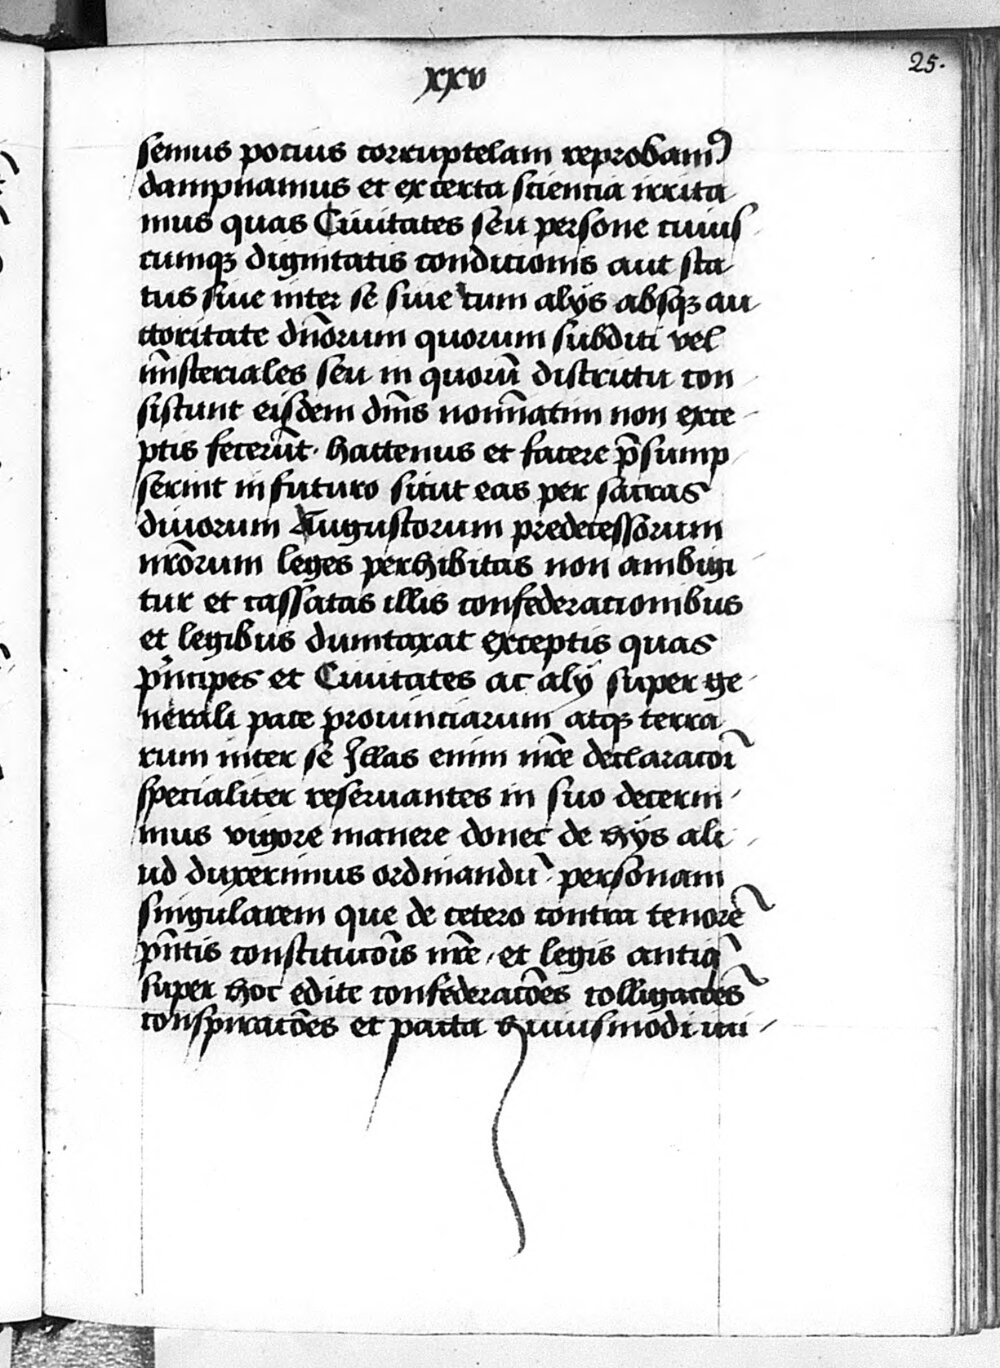 xxv
25.
semus pocius corruptelam reprobamꝰ
dampnamus et ex certa sciencia irrita
mus quas Ciuitates seu persone cuius
cumqꝫ dignitatis condicionis aut sta
tus siue inter se siue cum alijs absqꝫ au
ctoritate dn̄orum quorum subditi vel
mīsteriales seu in quorū districtu con
sistunt eisdem dn̄is nomīatim non exce
ptis fecerūt hactenus et facere p̄sump
serint in futuro sicut eas per sacras
diuorum Augustorum predecessorum
nr̄orum leges perhibitas non ambigi
tur et cassatas illis confederacionibus
et legibus dumtaxat exceptis quas
p'ncipes et Ciuitates ac alij super ge
nerali pace prouinciarum atqꝫ terra
rum inter se Illas enim nr̄e declaracōi
specialiter reseruantes in suo decerni
mus vigore manere donec de hijs ali
ud duxerimus ordinandū personam
singularem que de cetero contra tenorē
pn̄tis constitucōis nr̄e et legis antiq̄
super hoc edite confederacōes colligacōes
conspiracōes et pacta huiusmodi ini